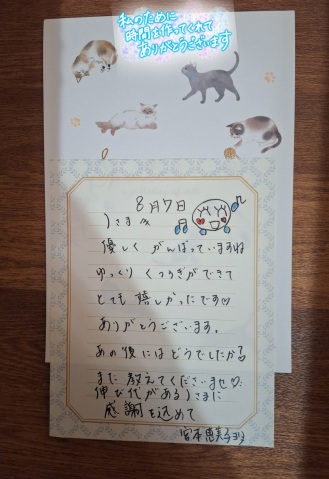 私のために
時間を作ってくれて
ありがとうございます
8月7日
うさま
優しく がんばっていますね
ゆっくり くつろぎができて
とても 嬉しかったです♡
ありがとうございます。
あの後にはどうでしたか?
また 教えてくださいませ♡
伸び代がある うさまに
感謝を込めて
恵美子ヨリ